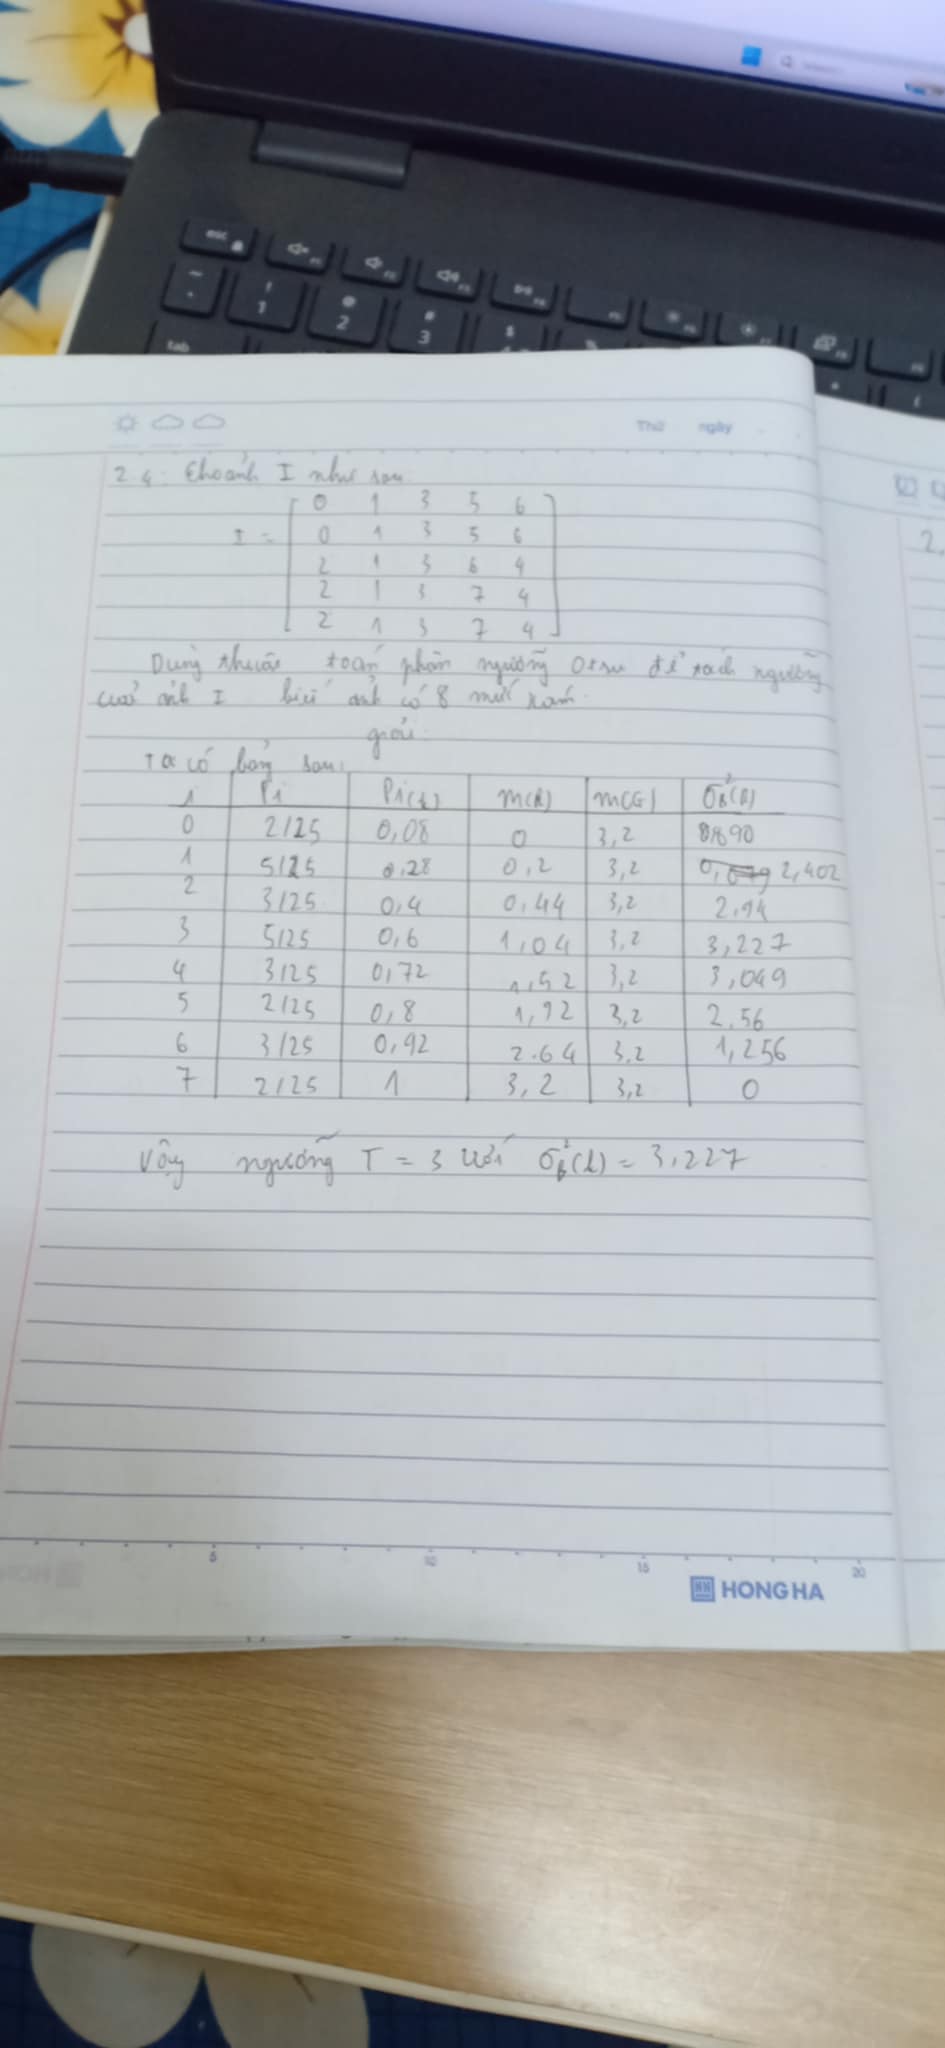 esc
!
1
@
2
#
3
$
tab
Thứ ngày
2.4: Cho ảnh I như sau.
0 1 3 5 6
I = 0 1 3 5 6
2 1 3 6 4
2 1 3 7 4
2 1 3 7 4
2.
Dùng thuật toán phân ngưỡng Otsu để tách ngưỡng
của ảnh I biết ảnh có 8 mức xám.
giải:
Ta có bảng sau:
i Pi P1(k) m(k) m(G) σB²(k)
0 2/25 0,08 0 3,2 0,890
1 5/25 0,28 0,2 3,2 2,402
2 3/25 0,4 0,44 3,2 2,94
3 5/25 0,6 1,04 3,2 3,227
4 3/25 0,72 1,52 3,2 3,049
5 2/25 0,8 1,92 3,2 2,56
6 3/25 0,92 2.64 3,2 1,256
7 2/25 1 3,2 3,2 0
Vậy ngưỡng T = 3 với σb²(k) = 3,227
5 10 15 20
HH HONG HA